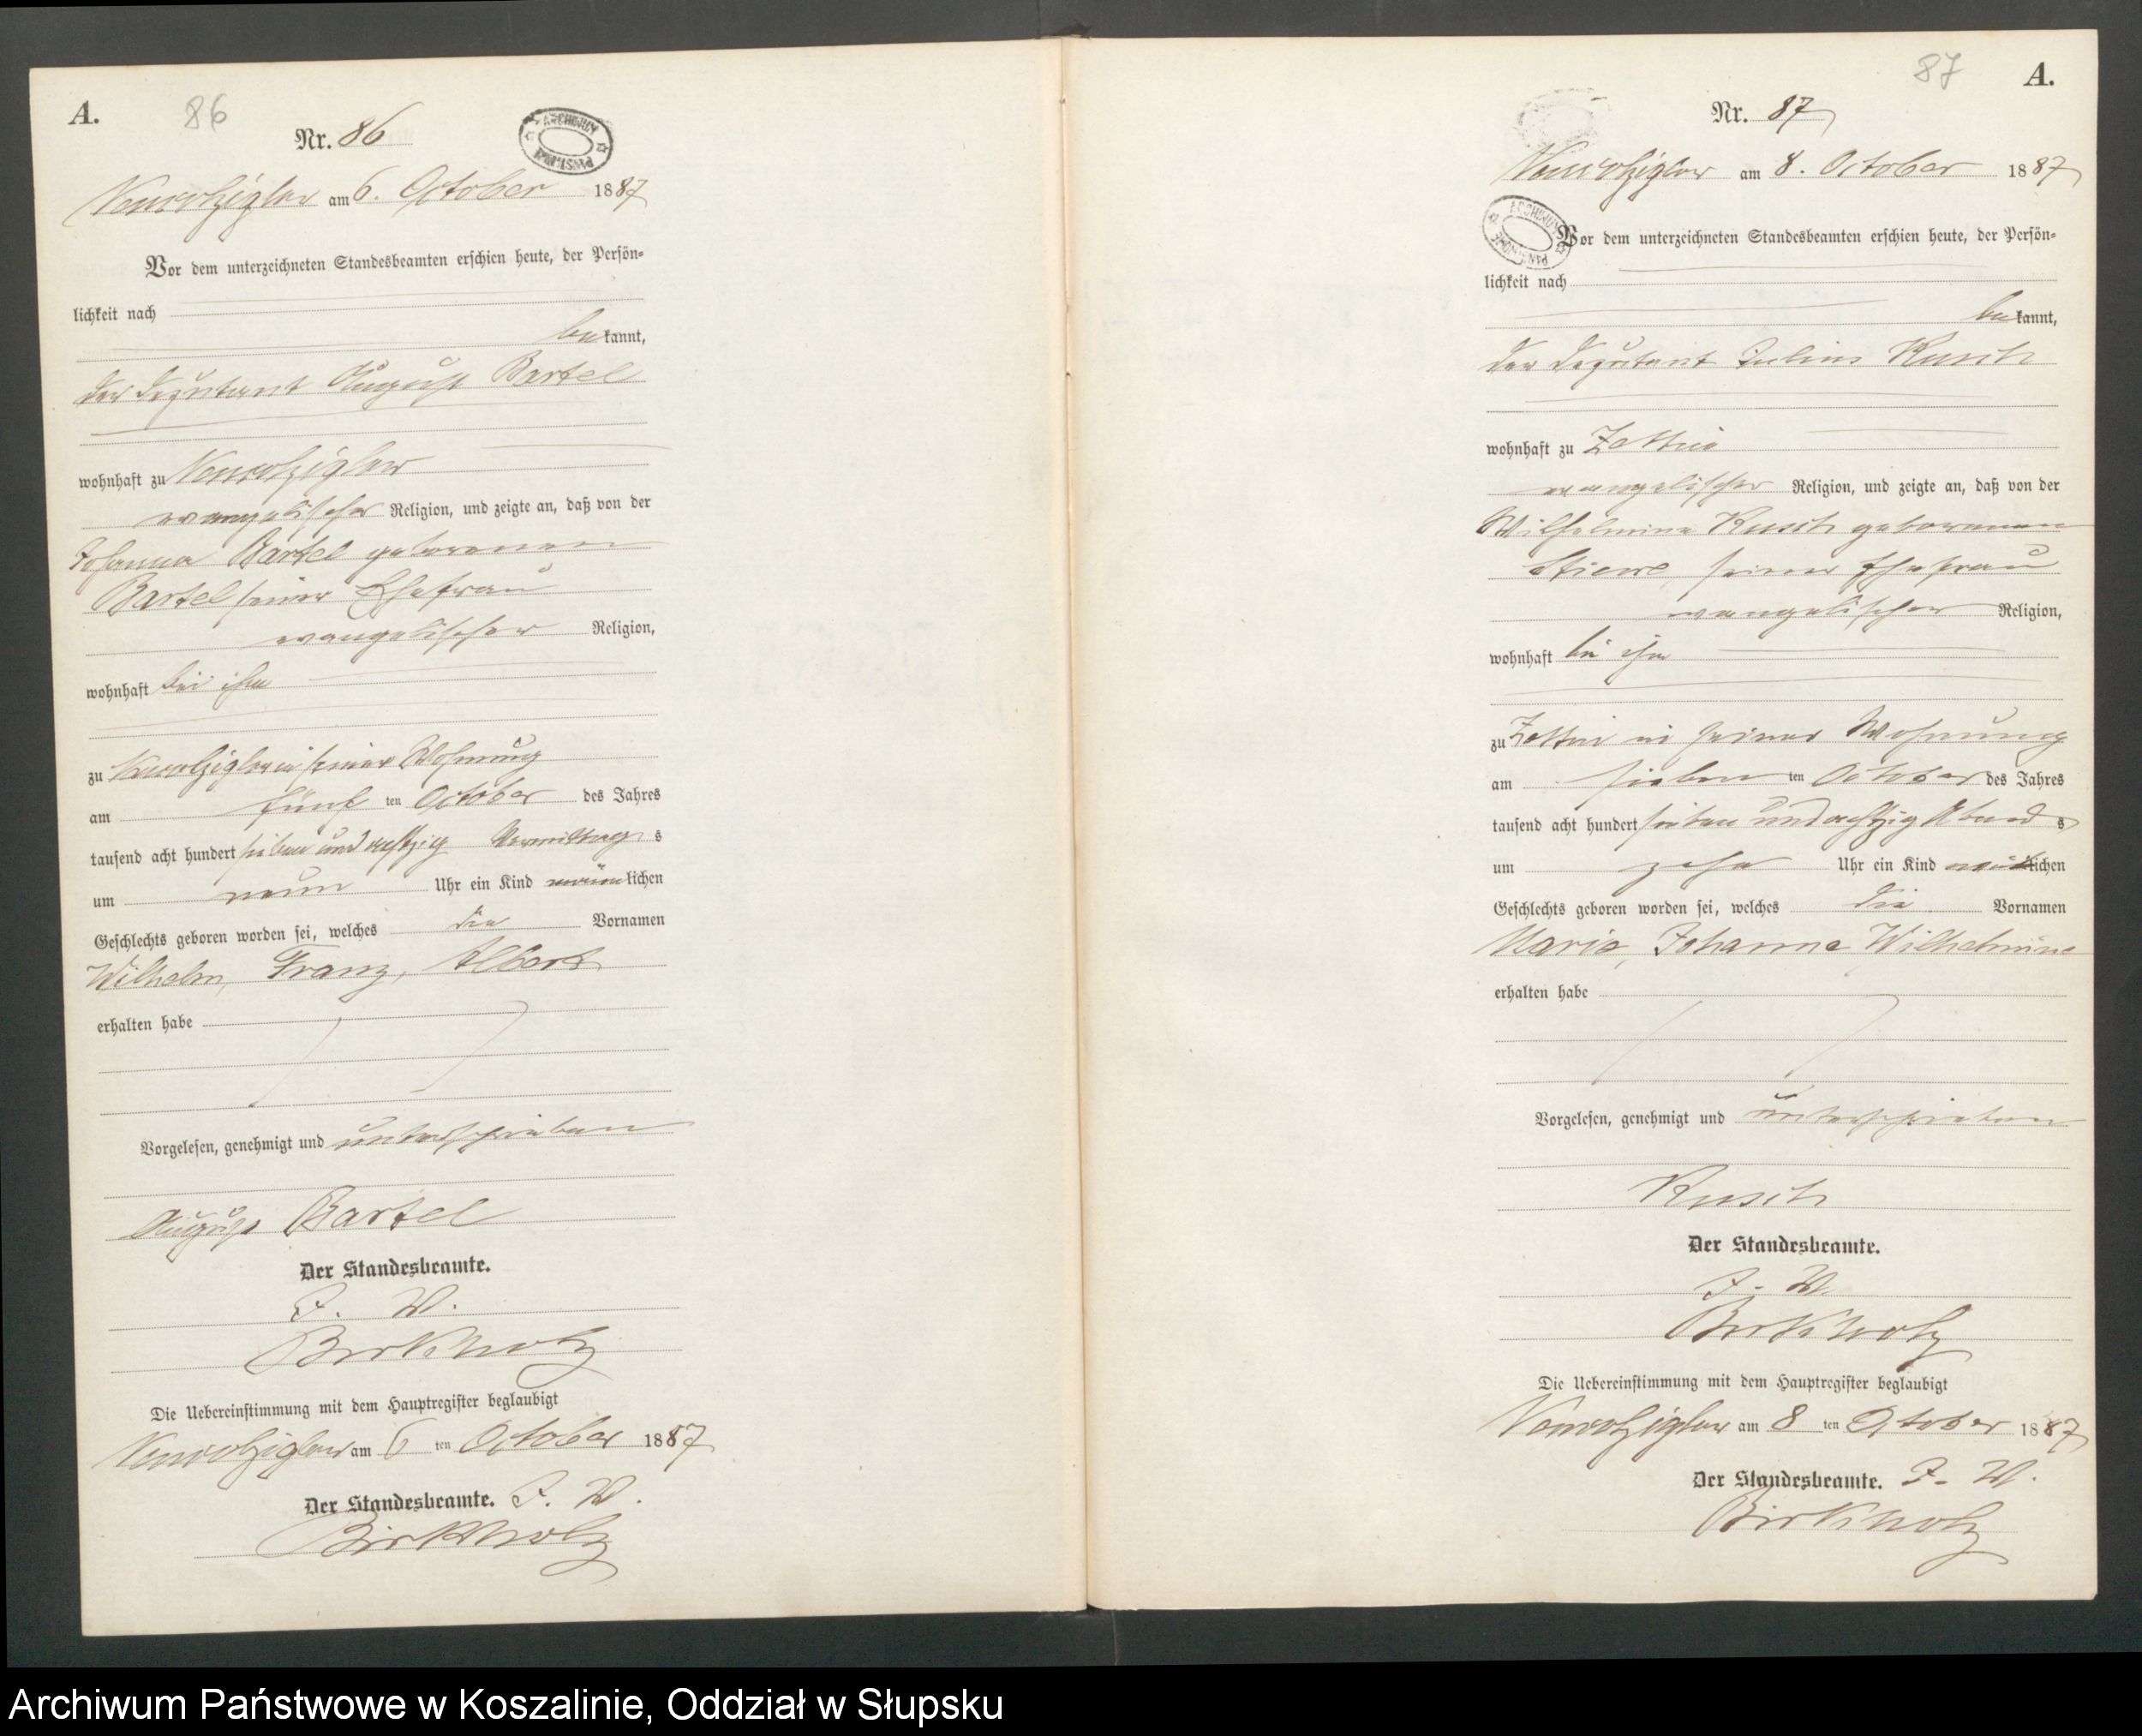 A.
86
Nr. 86
ARCHIWUM PAŃSTWOWE
am 6. October 1887
Vor dem unterzeichneten Standesbeamten erschien heute, der Persön-
lichkeit nach
bekannt,
der Deputant August Bartel
wohnhaft zu
evangelischer Religion, und zeigte an, daß von der
Johanna Bartel geborenen
Bartel seiner Ehefrau
evangelischer Religion,
wohnhaft bei ihm
zu in seiner Wohnung
am fünf ten October des Jahres
tausend acht hundert sieben und achtzig Vormittags
um neun Uhr ein Kind männlichen
Geschlechts geboren worden sei, welches die Vornamen
Wilhelm, Franz, Albert
erhalten habe
Vorgelesen, genehmigt und unterschrieben
August Bartel
Der Standesbeamte.
J. V.
Birkholz
Die Uebereinstimmung mit dem Hauptregister beglaubigt
am 6 ten October 1887
Der Standesbeamte. J. V.
Birkholz
87
A.
Nr. 87
am 8. October 1887
ARCHIWUM PAŃSTWOWE
Vor dem unterzeichneten Standesbeamten erschien heute, der Persön-
lichkeit nach
bekannt,
der Deputant Julius Kusch
wohnhaft zu Zettin
evangelischer Religion, und zeigte an, daß von der
Wilhelmine Kusch geborenen
seiner Ehefrau
evangelischer Religion,
wohnhaft bei ihm
zu Zettin in seiner Wohnung
am sieben ten October des Jahres
tausend acht hundert sieben und achtzig Abends
um zehn Uhr ein Kind weiblichen
Geschlechts geboren worden sei, welches die Vornamen
Marie, Johanne Wilhelmine
erhalten habe
Vorgelesen, genehmigt und unterschrieben
Kusch
Der Standesbeamte.
J. V.
Birkholz
Die Uebereinstimmung mit dem Hauptregister beglaubigt
am 8 ten October 1887
Der Standesbeamte. J. V.
Birkholz
Archiwum Państwowe w Koszalinie, Oddział w Słupsku